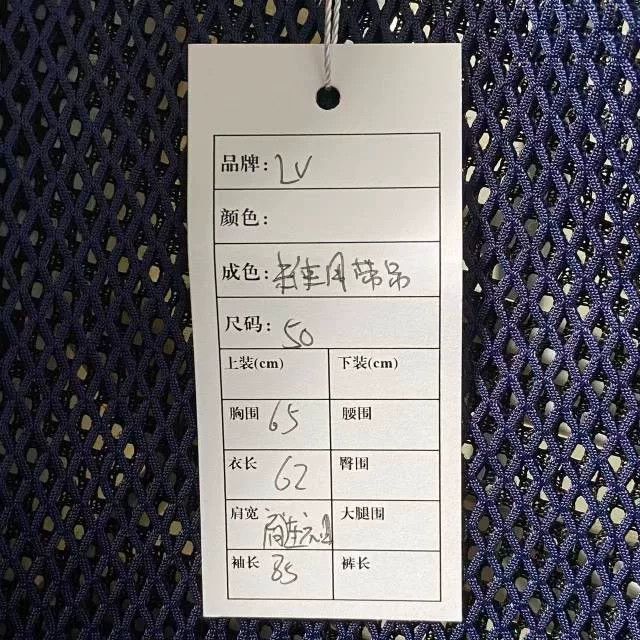 品牌: LV
颜色:
成色: 未使用带吊
尺码: 50
上装(cm) 下装(cm)
胸围 65 腰围
衣长 62 臀围
肩宽 大腿围
袖长 85 裤长